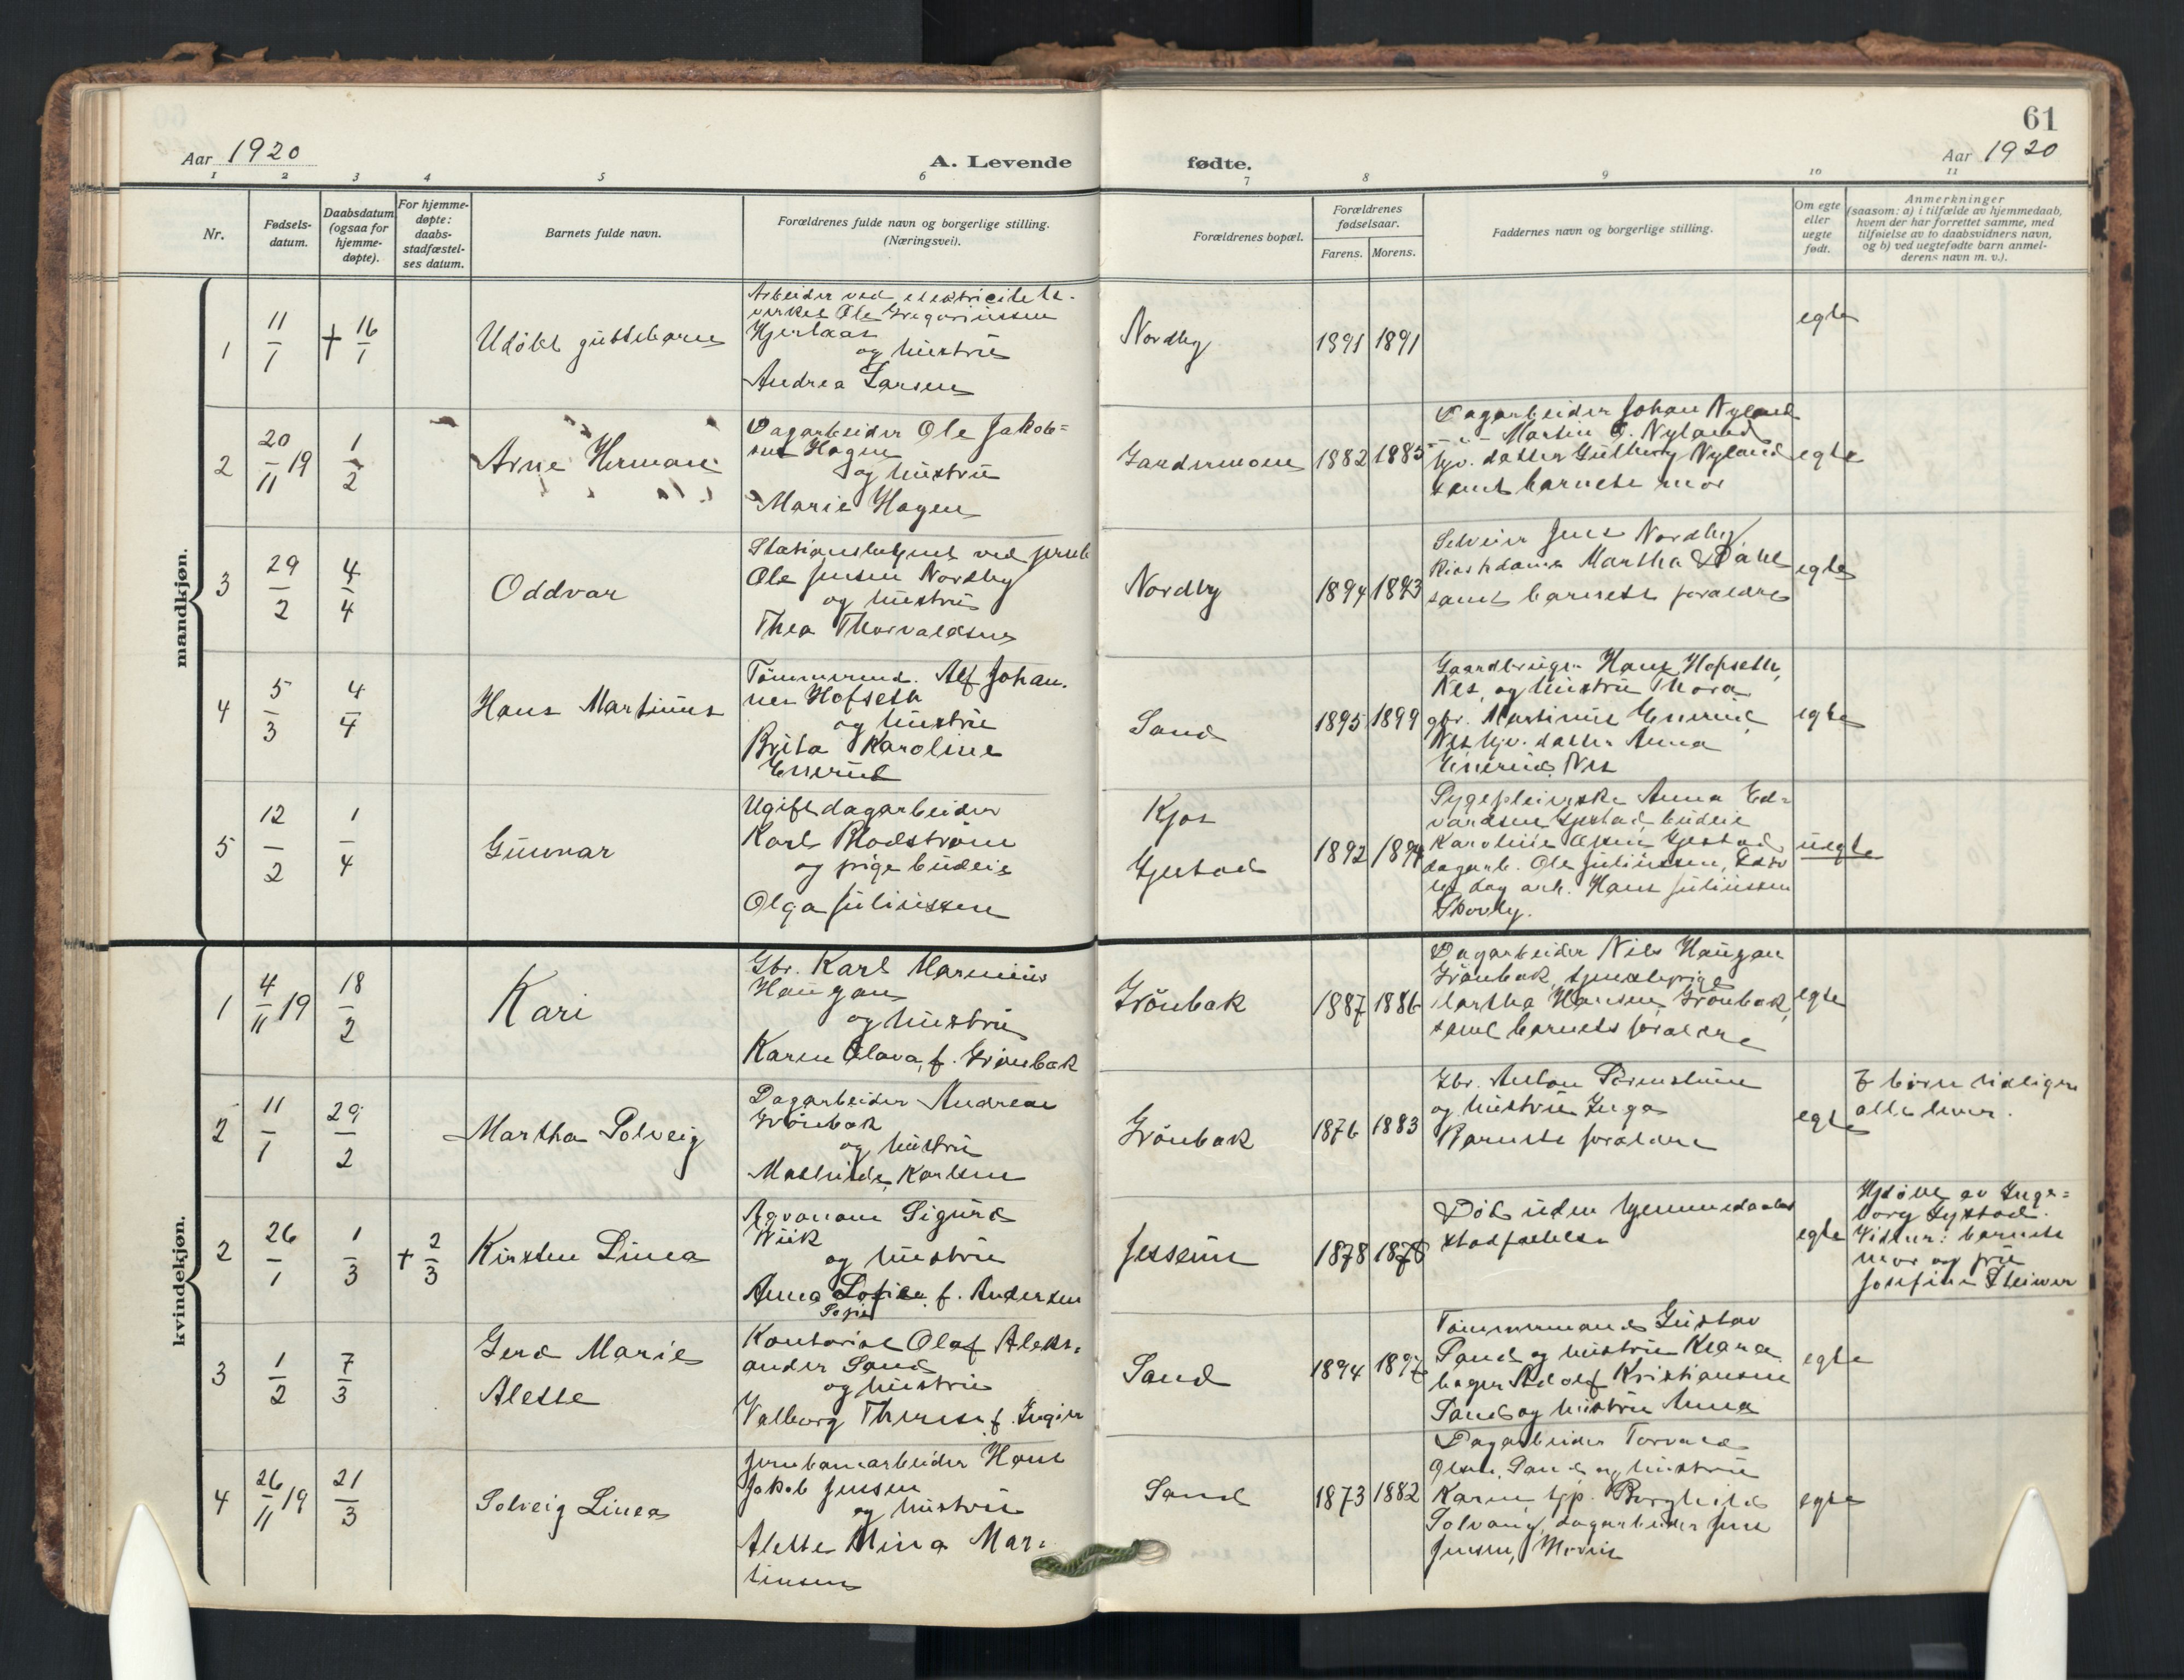 61
Aar 1920
A. Levende fødte.
Aar 1920
1 2 3 4 5 6 7 8 9 10 11
Nr.
Fødsels-
datum.
Daabsdatum
(ogsaa for
hjemme-
døpte).
For hjemme-
døpte:
daabs-
stadfæstel-
ses datum.
Barnets fulde navn.
Forældrenes fulde navn og borgerlige stilling.
(Næringsvei).
Forældrenes bopæl.
Forældrenes
fødselsaar.
Farens. Morens.
Faddernes navn og borgerlige stilling.
Om egte
eller
uegte
født.
Anmerkninger
(saasom: a) i tilfælde av hjemmedaab,
hvem der har forrettet samme, med
tilføielse av to daabsvidners navn,
og b) ved uegtefødte barn anmel-
derens navn m. v.).
mandkjøn.
1
11/1
† 16/1
Udøbt guttebarn
Arbeider ved elektricitets-
verket Ole Gregoriussen
Hjerlaas
og hustru
Andrea Larsen
Nordby
1891 1891
egte
2
20/11 19
1/2
Arne Herman
Dagarbeider Ole Jakob=
sen Hagen
og hustru
Marie Hagen
Gardermoen
1882 1885
Dagarbeider Johan Nyland
- " - Martin O. Nyland
hjv. datter Gudborg Nyland
samt barnets mor
egte
3
29/2
4/4
Oddvar
Stationsbetjent ved jernb
Ole Jensen Nordby
og hustru
Thea Thorvaldsen
Nordby
1894 1893
Selveier Jens Nordby
Martha Dahl
samt barnets forældre
egte
4
5/3
4/4
Hans Martinus
Tømmermd. Alf Johan.
nes Hofseth
og hustru
Brita Karoline
Enerud
Sand
1895 1899
Gaardbruger Hans Hofseth,
Nes, og hustru Thora
gbr. Martinus Enerud
Nes, hjv. datter Anna
Enerud, Nes
egte
5
12/2
1/4
Gunnar
Ugift dagarbeider
Karl Rhodstrøm
og pige budeie
Olga Juliussen
Kjos
Gjestad
1892 1894
Sygepleierske Anna Ed=
vardsen Gjestad, budeie
Karoline Olsen Gjestad
dagarb. Ole Juliussen,
dag arb. Hans Juliussen
Skovly.
uegte
kvindekjøn.
1
4/11 19
18/2
Kari
Gbr. Karl Marinius
Haugan
og hustru
Karen Olava, f. Grønbæk
Grønbæk
1887 1886
Dagarbeider Nils Haugan
Grønbæk, tjenestepige
Martha Hansen, Grønbæk,
samt barnets forældre
egte
2
11/1
29/2
Martha Solveig
Dagarbeider Andreas
Grønbæk
og hustru
Mathilde Karlsen
Grønbæk
1876 1883
Gbr. Anton
og hustru Inga
Barnets forældre
egte
7 børn tidligere
alle lever.
2
26/1
1/3
† 2/3
Kirsten Linea
Agronom Sigurd
Wiik
og hustru
Anna Sofie f. Andersen
Sofie
Jessein
1878 1878
Død uden hjemmedaabs
stadfæstelse
egte
Hjdøbt av Inge=
borg Gystad.
Vidner: barnets
mor og fru
Josefine Steiner
3
1/2
7/3
Gerd Marie
Alette
Kontorist Olaf Aleks=
ander Sand
og hustru
Valborg Therese f. Ingier
Sand
1894 1897
Tømmermand Gustav
Sand og hustru Klara
bager Adolf Kristiansen
Sand og hustru Anna
egte
4
26/11 19
21/3
Solveig Linea
Jernbanearbeider Hans
Jakob Jensen
og hustru
Alette Mina Mar=
tinsen
Sand
1873 1882
Dagarbeider Torvald
Olsen, Sand og hustru
Karen, tjp. Borghild
Solvang, dagarbeider Jens
Jensen,
egte